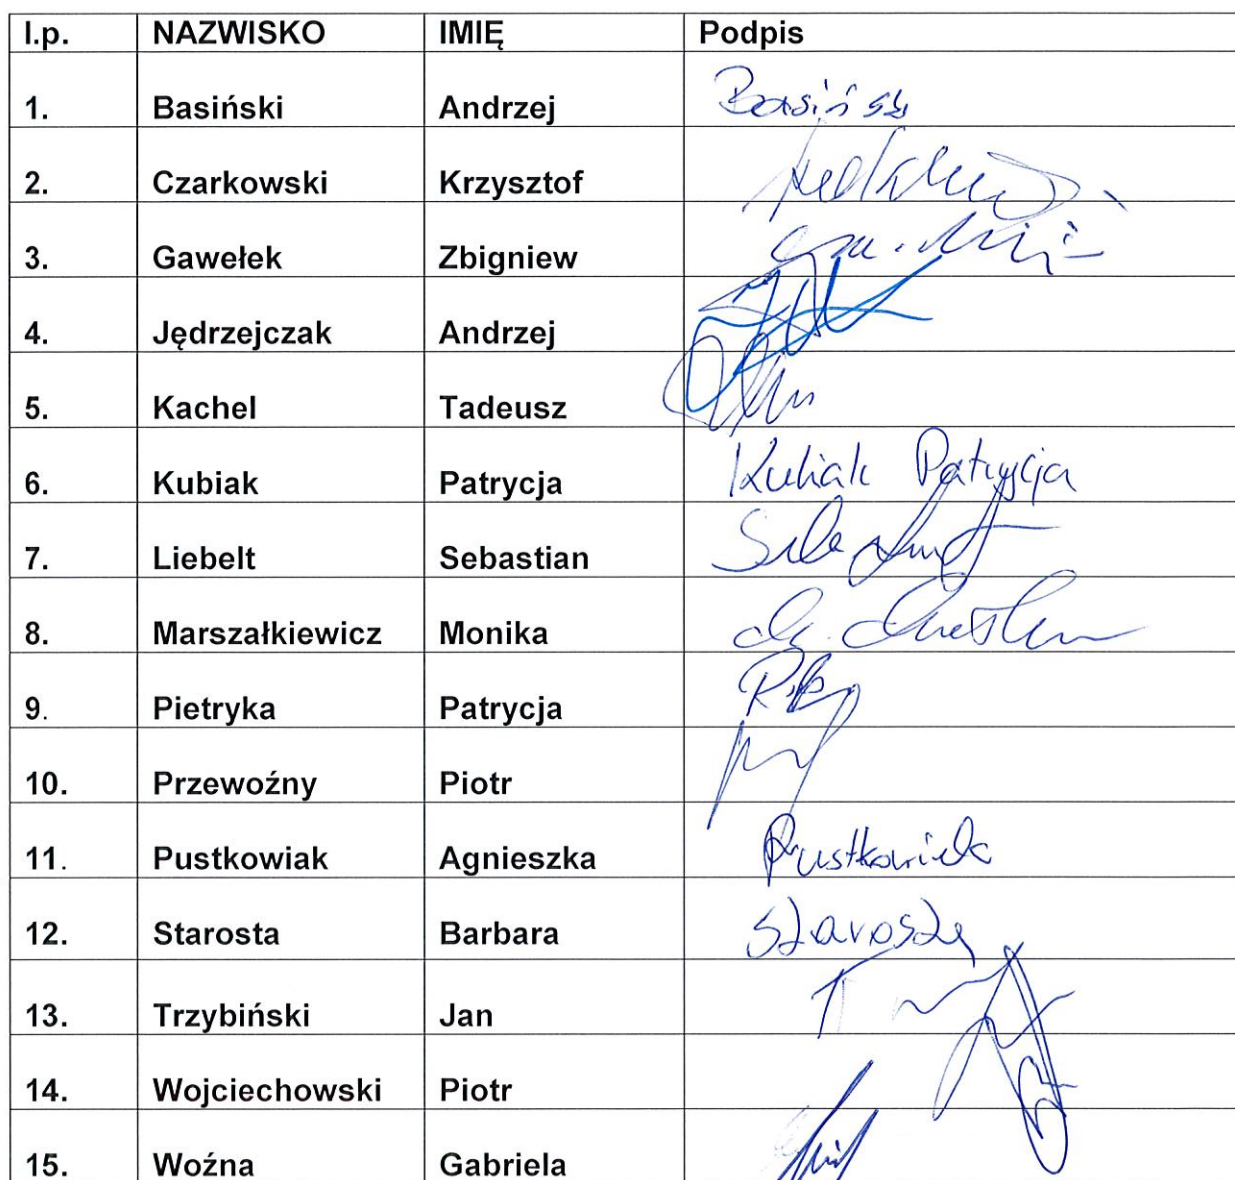 l.p. NAZWISKO IMIĘ Podpis
1. Basiński Andrzej
2. Czarkowski Krzysztof
3. Gawełek Zbigniew
4. Jędrzejczak Andrzej
5. Kachel Tadeusz
6. Kubiak Patrycja Kubiak Patrycja
7. Liebelt Sebastian
8. Marszałkiewicz Monika
9. Pietryka Patrycja
10. Przewoźny Piotr
11. Pustkowiak Agnieszka Pustkowiak
12. Starosta Barbara Starosta
13. Trzybiński Jan
14. Wojciechowski Piotr
15. Woźna Gabriela